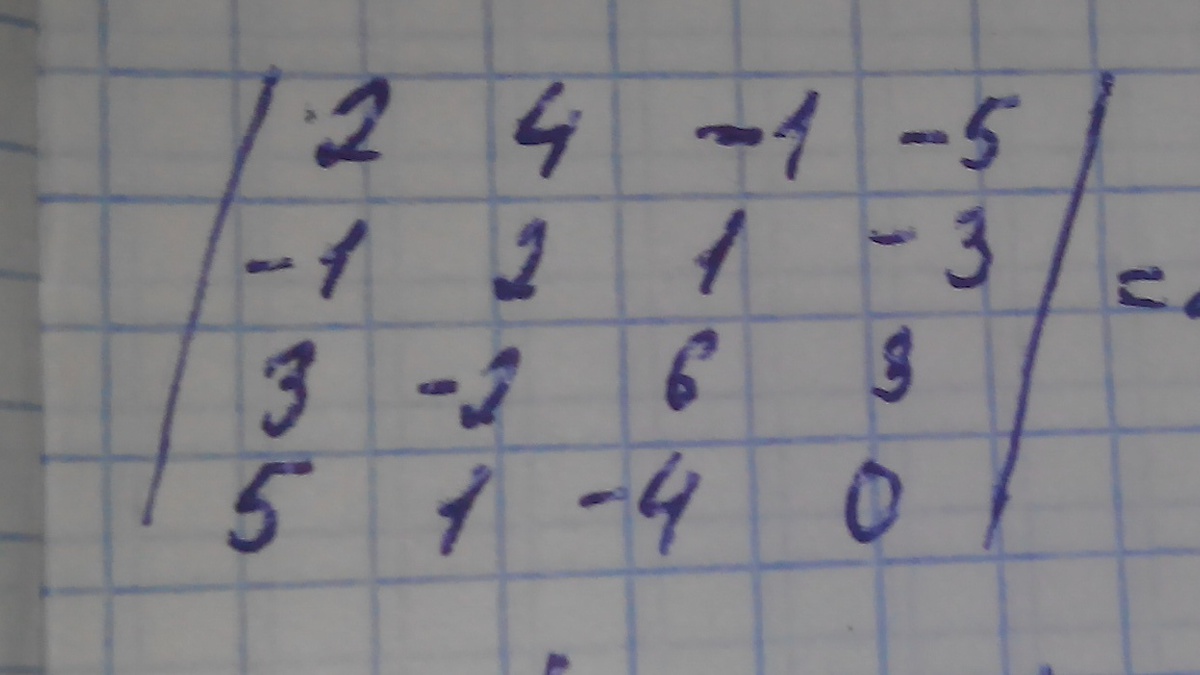 | 2 4 -1 -5 |
-1 2 1 -3 =
3 -2 6 3
5 1 -4 0